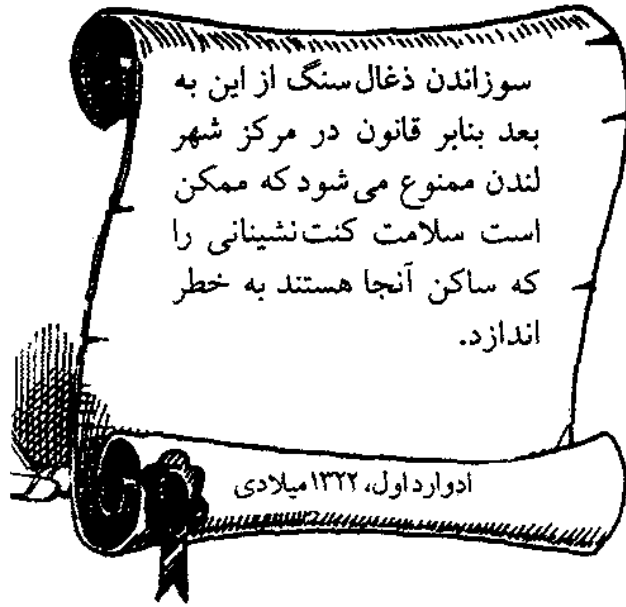 سوزاندن ذغال‌سنگ از این به
بعد بنابر قانون در مرکز شهر
لندن ممنوع می‌شود که ممکن
است سلامت کنت‌نشینانی را
که ساکن آنجا هستند به خطر
اندازد.
ادوارد اول، ۱۳۲۲ میلادی